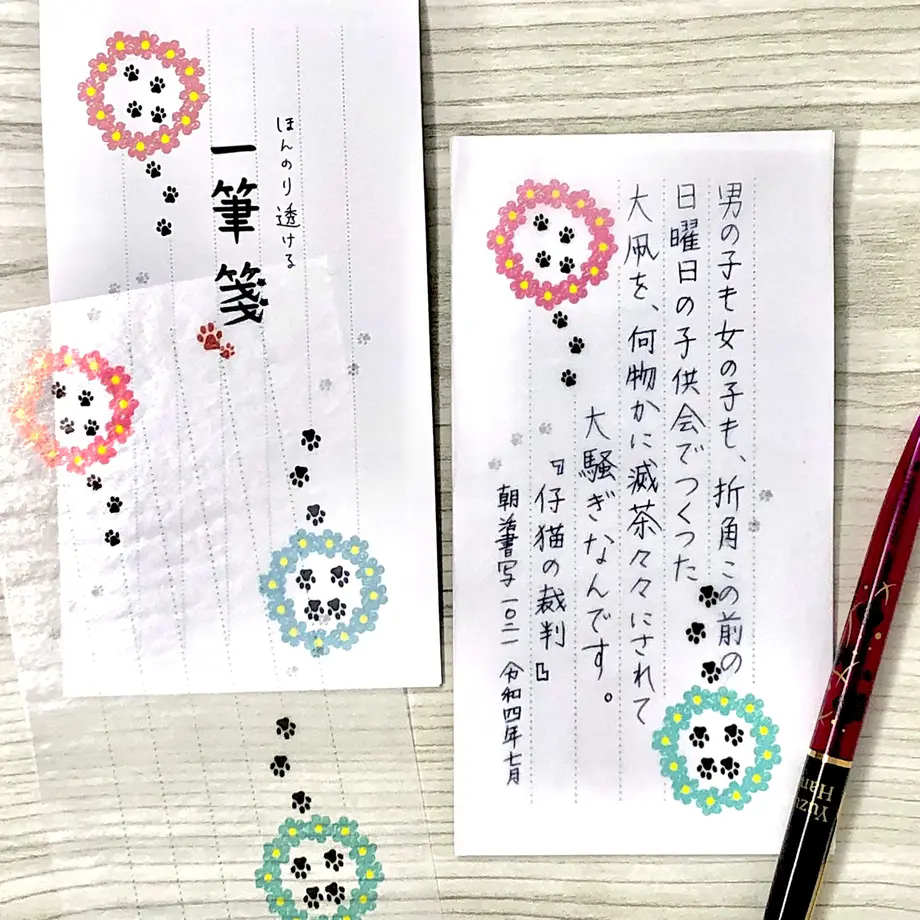 ほんのり透ける
一筆箋
男の子も女の子も、折角この前の
日曜日の子供会でつくった
大凧を、何物かに滅茶々々にされて
大騒ぎなんです。
『仔猫の裁判』
朝活書写 一〇二一 令和四年七月